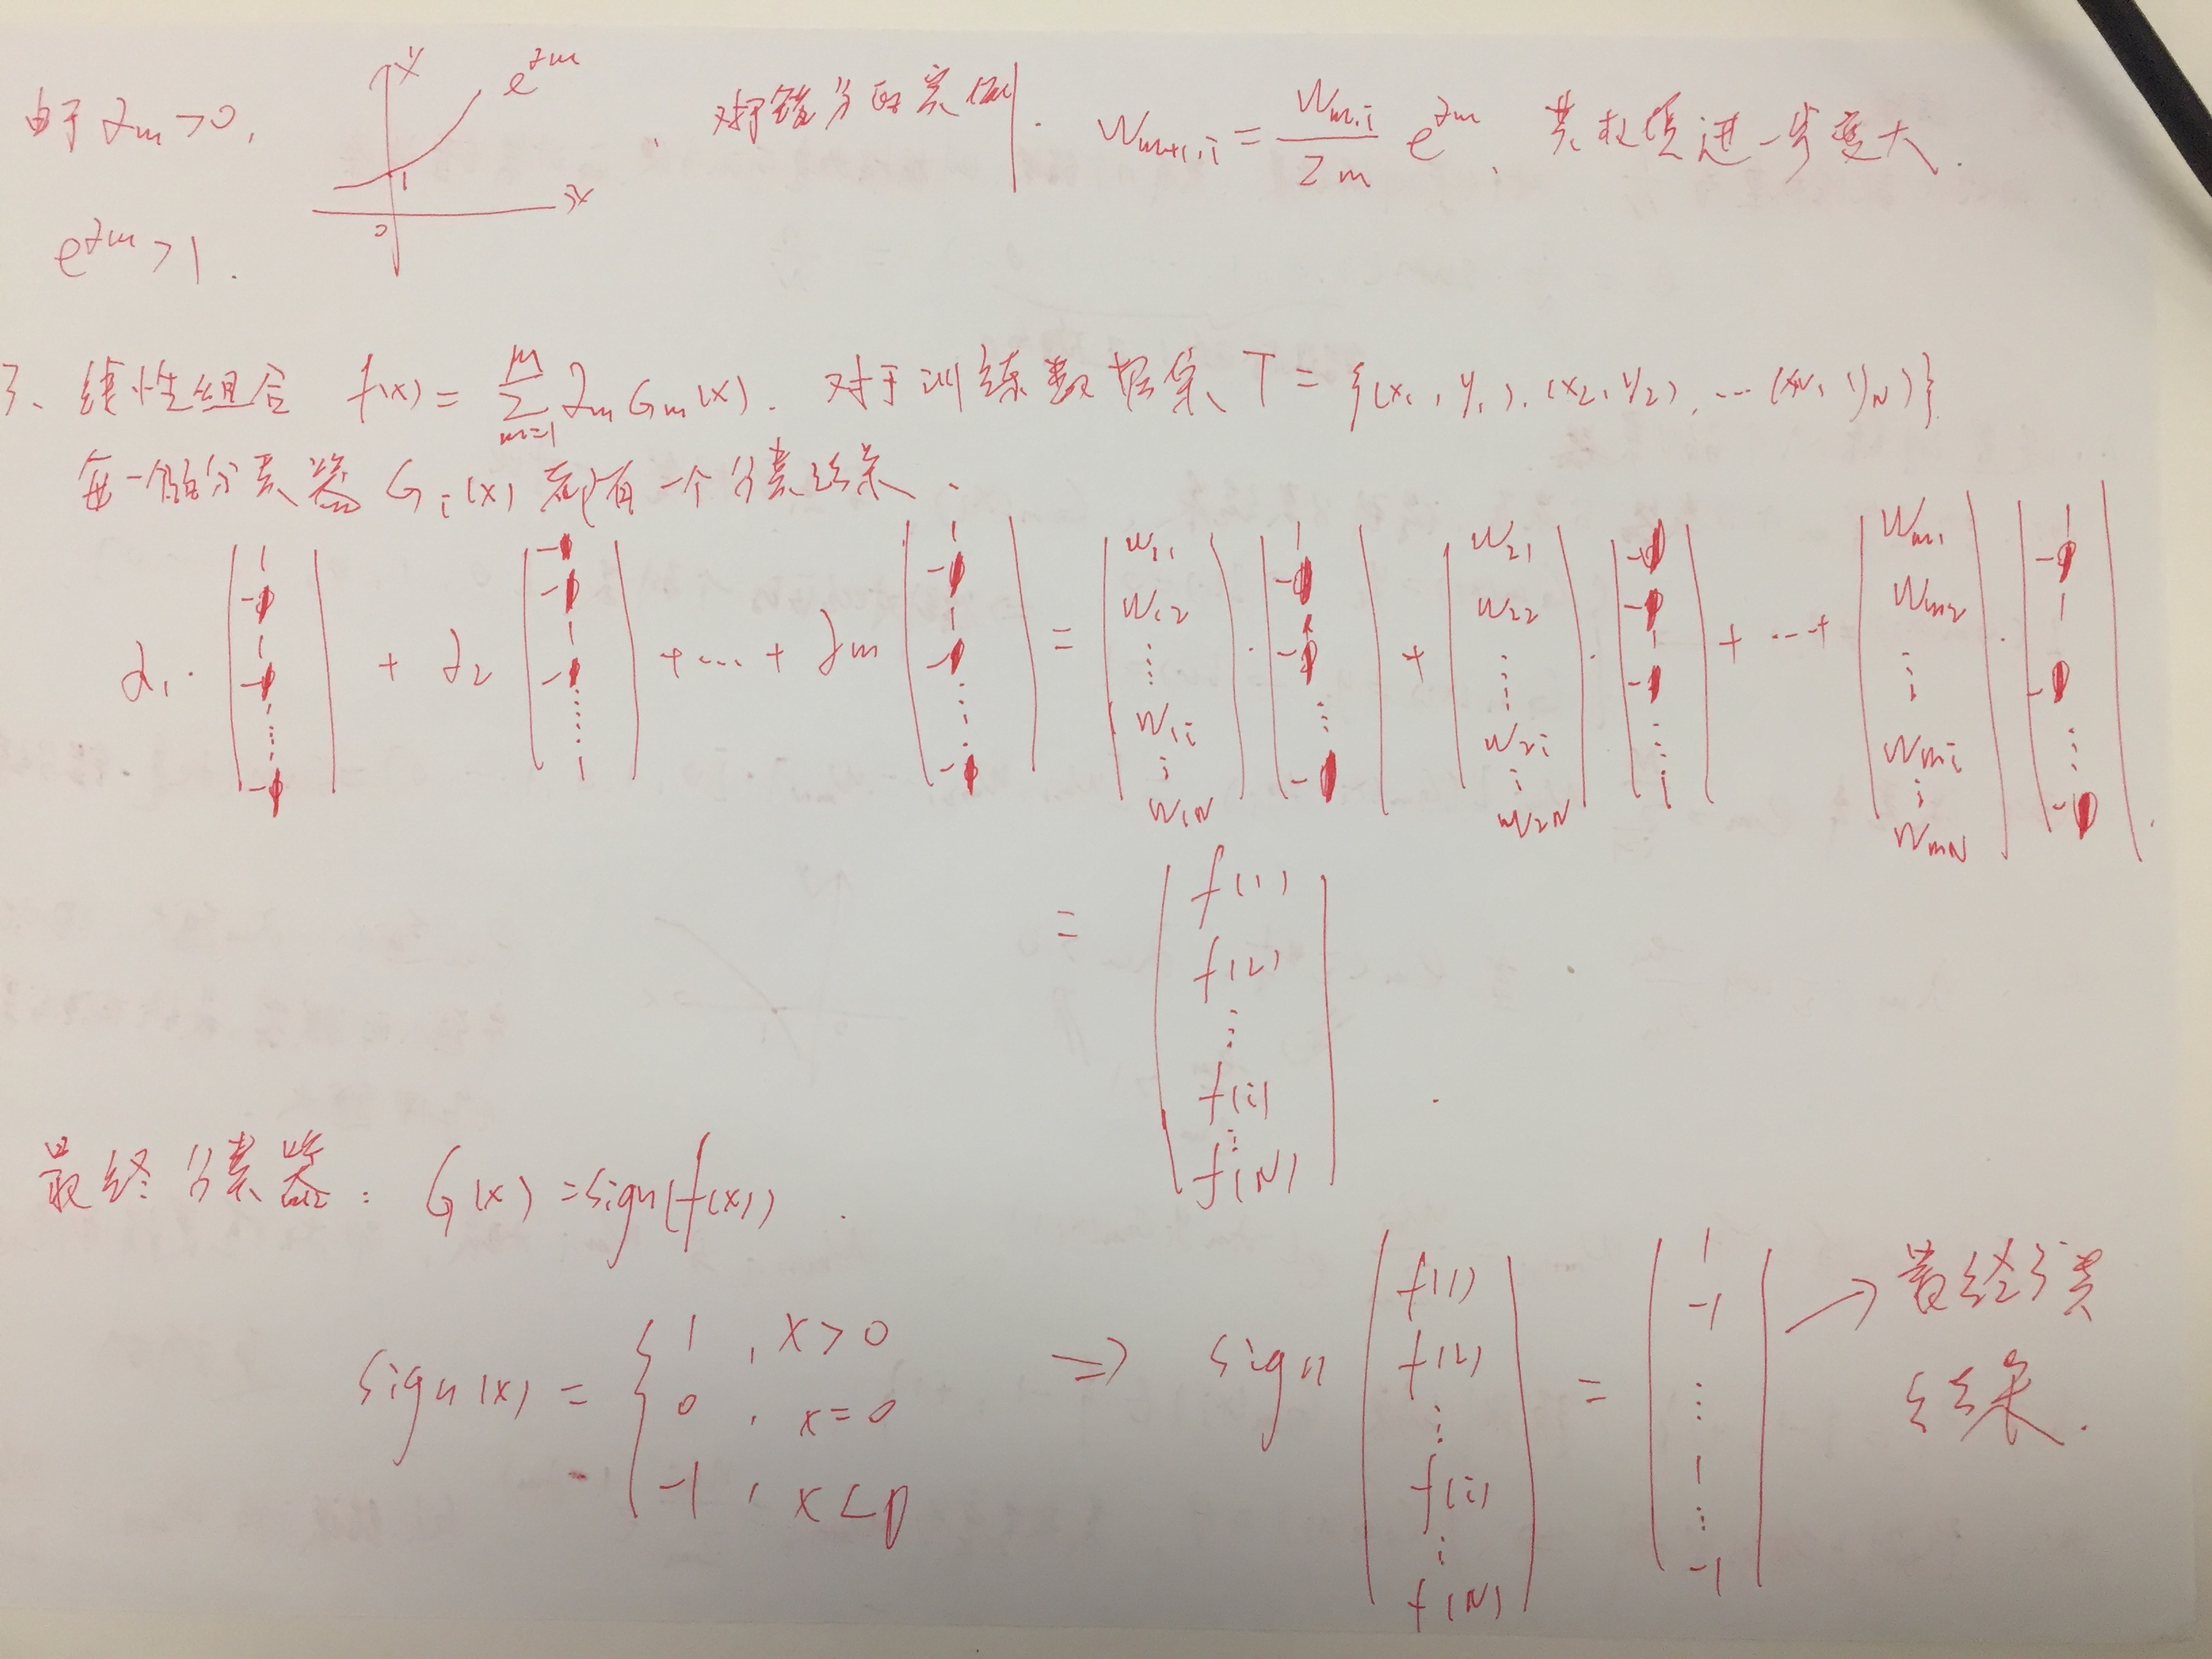 由于 αm >0, y e^αm 对于错分的实例 . Wm+1,i = Wm,i / Zm e^αm , 其权值进一步变大 .
1 x 0
e^αm >1 .
3、线性组合 f(x) = M ∑ m=1 αm Gm(x) . 对于训练数据集 T = {(x1, y1), (x2, y2), ... (xN, yN)}
每一个分类器 Gi(x) 都有一个分类结果 .
α1 · | 1 -1 1 -1 ⋮ -1 | + α2 | -1 -1 1 -1 ⋮ 1 | + ... + αm | 1 -1 1 -1 ⋮ -1 | = | W11 W12 ⋮ W1i ⋮ W1N | · | 1 -1 1 -1 ⋮ -1 | + | W21 W22 ⋮ W2i ⋮ W2N | · | -1 -1 1 -1 ⋮ 1 | + ... + | Wm1 Wm2 ⋮ Wmi ⋮ WmN | · | 1 -1 1 -1 ⋮ -1 | .
= | f(1) f(2) ⋮ f(i) ⋮ f(N) | .
最终分类器 : G(x) = sign(f(x)) .
sign(x) = { 1 , x>0
0 , x=0
-1 , x<0
=> sign | f(1) f(2) ⋮ f(i) ⋮ f(N) | = | 1 -1 ⋮ 1 ⋮ -1 | → 最终分类
结果 .